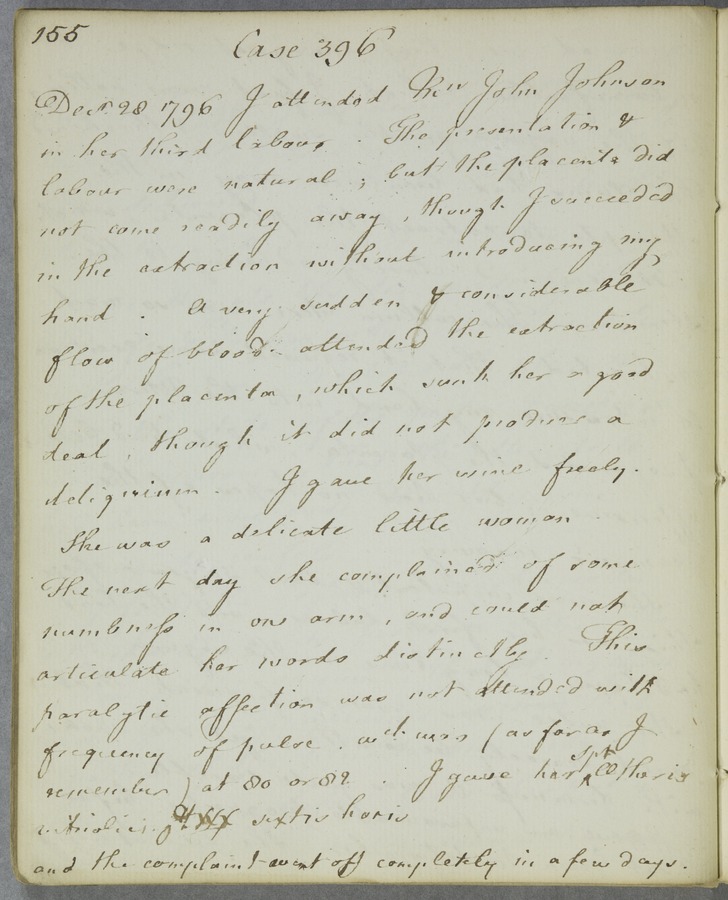 155
Case 396
Decr 28 1796 I attended Mrs John Johnson
in her third labour. The presentation &
labour were natural; but the placenta did
not come readily away, though I succeeded
in the extraction without introducing my
hand. A very sudden & considerable
flow of blood attended the extraction
of the placenta, which sunk her a good
deal, though it did not produce a
deliquium. I gave her wine freely.
She was a delicate little woman
The next day she complained of some
numbness in one arm, and could not
articulate her words distinctly. This
paralytic affection was not attended with
frequency of pulse. wch was (as far as I
remember) at 80 or 82. I gave her spt Ætheris
vitriolici sextis horis
and the complaint went off completely in a few days.